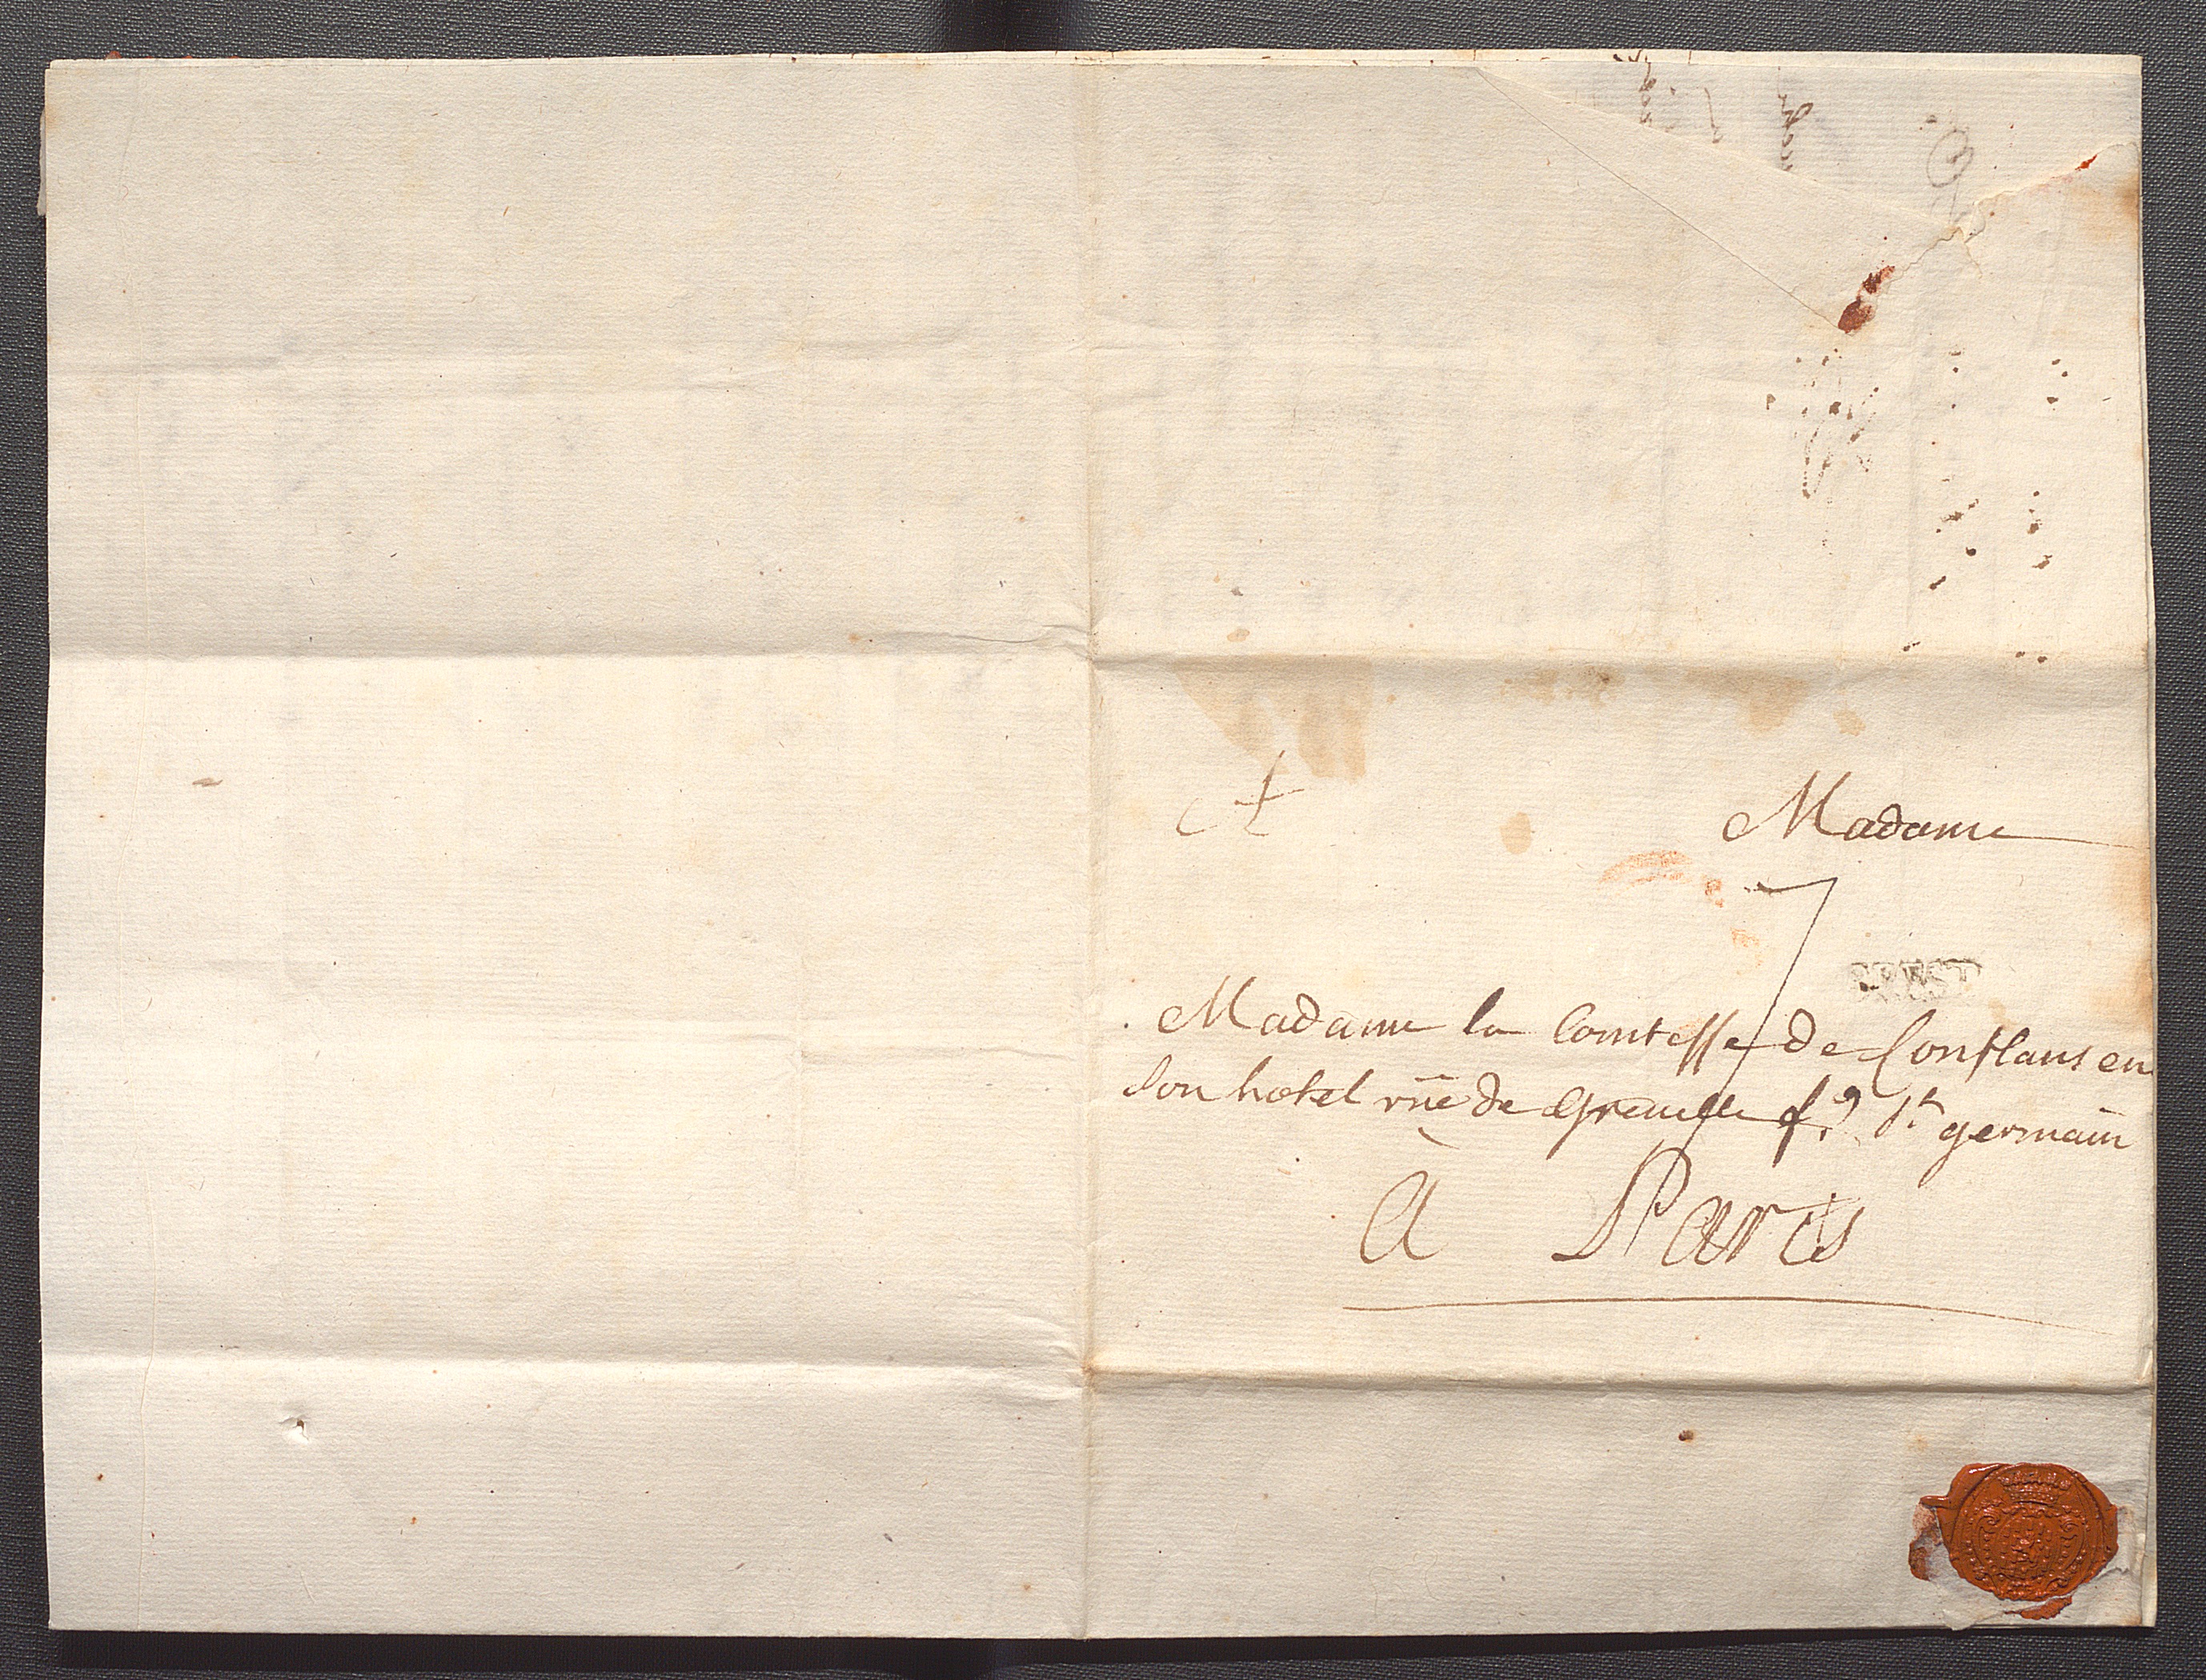 Madame
7
BREST
Madame la Comtesse de Conflans en
son hotel rüe de Grenelle f.g St germain
A Paris